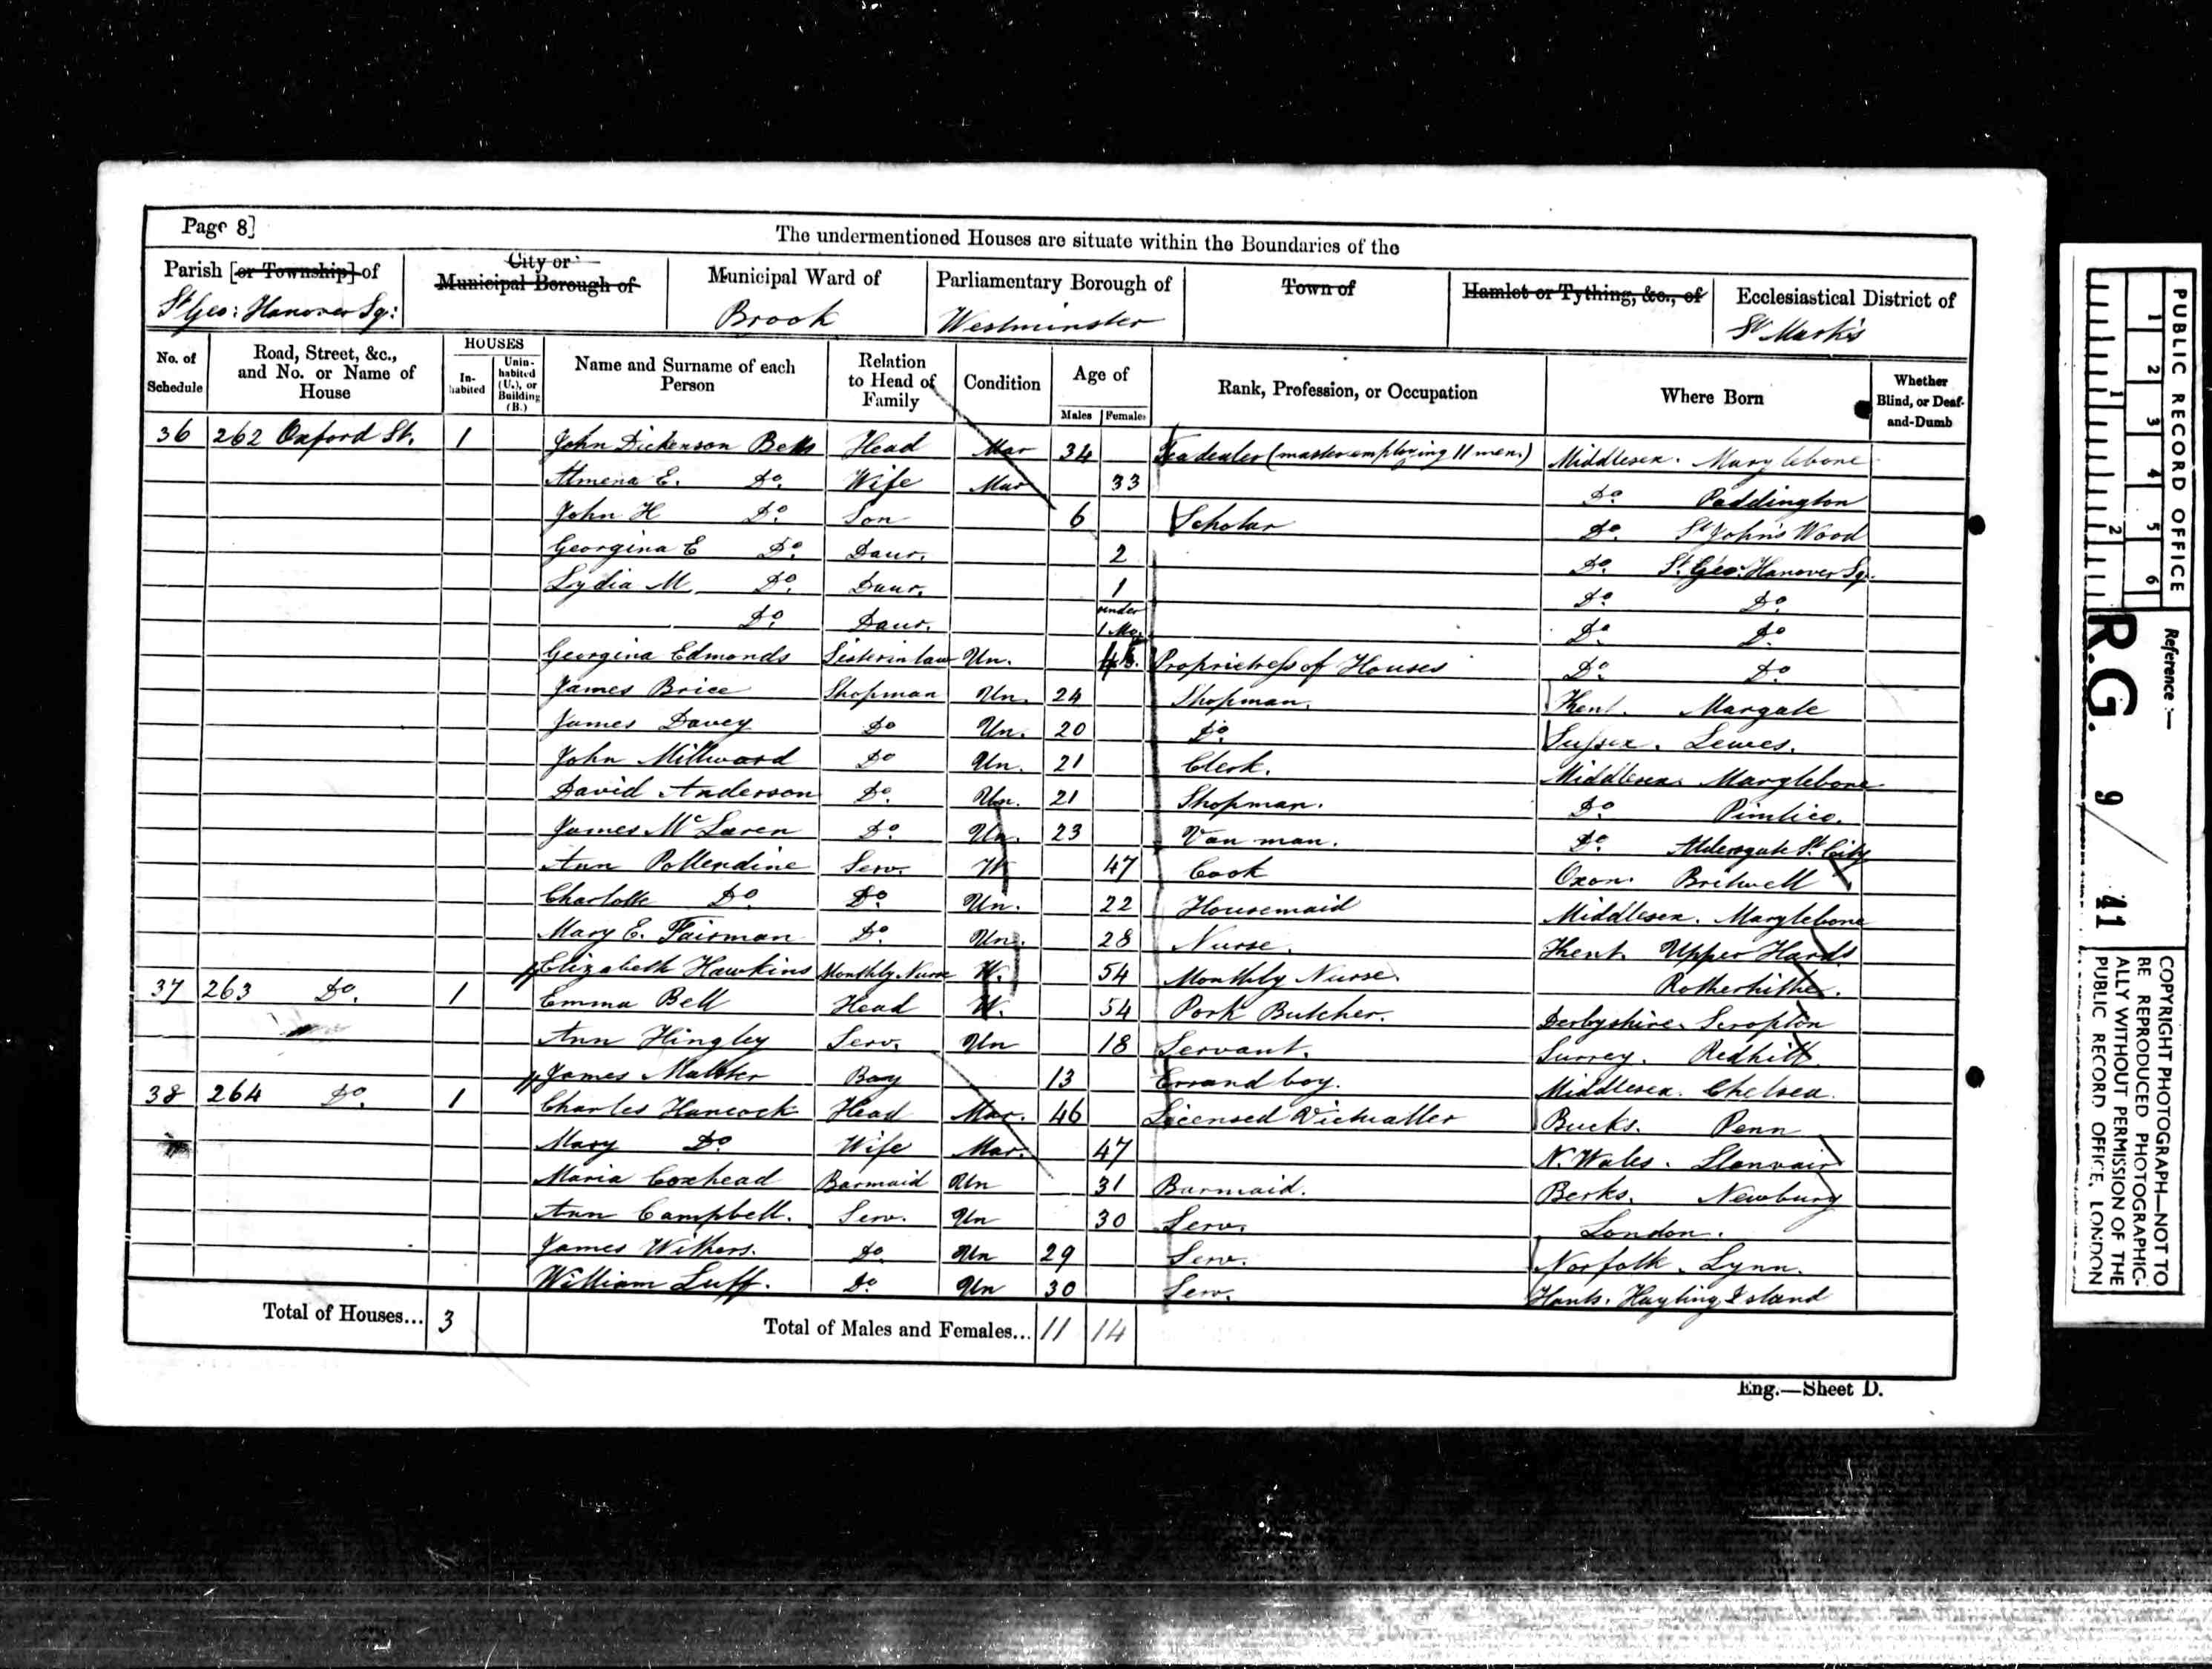 Page 8]
The undermentioned Houses are situate within the Boundaries of the
Parish [or Township] of
St Geo: Hanover Sq:
City or
Municipal Borough of
Municipal Ward of
Brook
Parliamentary Borough of
Westminster
Town of
Hamlet or Tything, &c., of
Ecclesiastical District of
St Mark's
No. of Schedule
Road, Street, &c., and No. or Name of House
HOUSES
In-habited
Unin-habited (U.), or Building (B.)
Name and Surname of each Person
Relation to Head of Family
Condition
Age of
Males Females
Rank, Profession, or Occupation
Where Born
Whether Blind, or Deaf-and-Dumb
36 262 Oxford St. 1 John Dickenson Betts Head Mar 34 Tea dealer (master employing 11 men.) Middlesex. Marylebone
Almena E. Do. Wife Mar 33 Do. Paddington
John H Do. Son 6 Scholar Do. St John's Wood
Georgina E Do. Daur. 2 Do. St. Geo. Hanover Sq.
Lydia M Do. Daur. 1 Do. Do.
Do. Daur. under 1 Mo. Do. Do.
Georgina Edmonds Sister in law Un. Proprietress of Houses Do. Do.
James Brice Shopman Un. 24 Shopman. Kent. Margate
James Davey Do Un. 20 Do. Sussex. Lewes.
John Millward Do Un. 21 Clerk. Middlesex. Marylebone
David Anderson Do. Un. 21 Shopman. Do. Pimlico.
James McLaren Do. Un. 23 Van man. Do. Aldersgate St. City
Ann Pollendine Serv. W 47 Cook Oxon. Britwell
Charlotte Do. Do. Un. 22 Housemaid Middlesex. Marylebone
Mary E. Fairman Do. Un. 28 Nurse. Kent. Upper Hards
Elizabeth Hawkins Monthly Nurse W. 54 Monthly Nurse. Rotherhithe.
37 263 Do. 1 Emma Bell Head W. 54 Pork Butcher. Derbyshire. Scropton
Ann Hingley Serv. Un 18 Servant. Surrey. Redhill.
James Boy 13 Errand boy. Middlesex. Chelsea.
38 264 Do. 1 Charles Hancock Head Mar. 46 Licensed Victualler Bucks. Penn
Mary Do Wife Mar. 47 N. Wales. Llanvair
Maria Coxhead Barmaid Un 31 Barmaid. Berks. Newbury
Ann Campbell. Serv. Un 30 Serv. London.
James Withers. Do. Un 29 Serv. Norfolk. Lynn.
William Luff. Do. Un 30 Serv. Hants. Hayling Island
Total of Houses... 3 Total of Males and Females... 11 14
Eng.—Sheet D.
PUBLIC RECORD OFFICE
1 2 3 4 5 6
1 2
Reference:—
R.G. 9/41
COPYRIGHT PHOTOGRAPH—NOT TO
BE REPRODUCED PHOTOGRAPHIC-
ALLY WITHOUT PERMISSION OF THE
PUBLIC RECORD OFFICE, LONDON